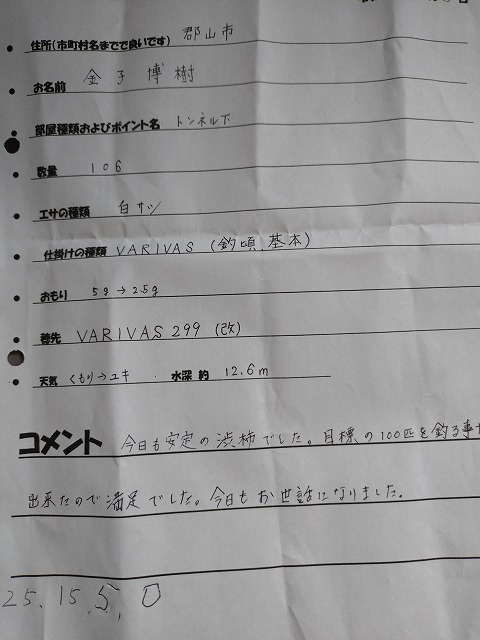 住所(市町村名までで良いです) 郡山市
お名前 金子 博樹
部屋種類およびポイント名 トンネル下
数量 106
エサの種類 白サシ
仕掛けの種類 VARIVAS (釣頃、基本)
おもり 5g→2.5g
穂先 VARIVAS 299 (改)
天気 くもり→ユキ 水深 約 12.6m
コメント 今日も安定の渋柿でした。目標の100匹を釣る事が
出来たので満足でした。今日もお世話になりました。
25、15、5、0